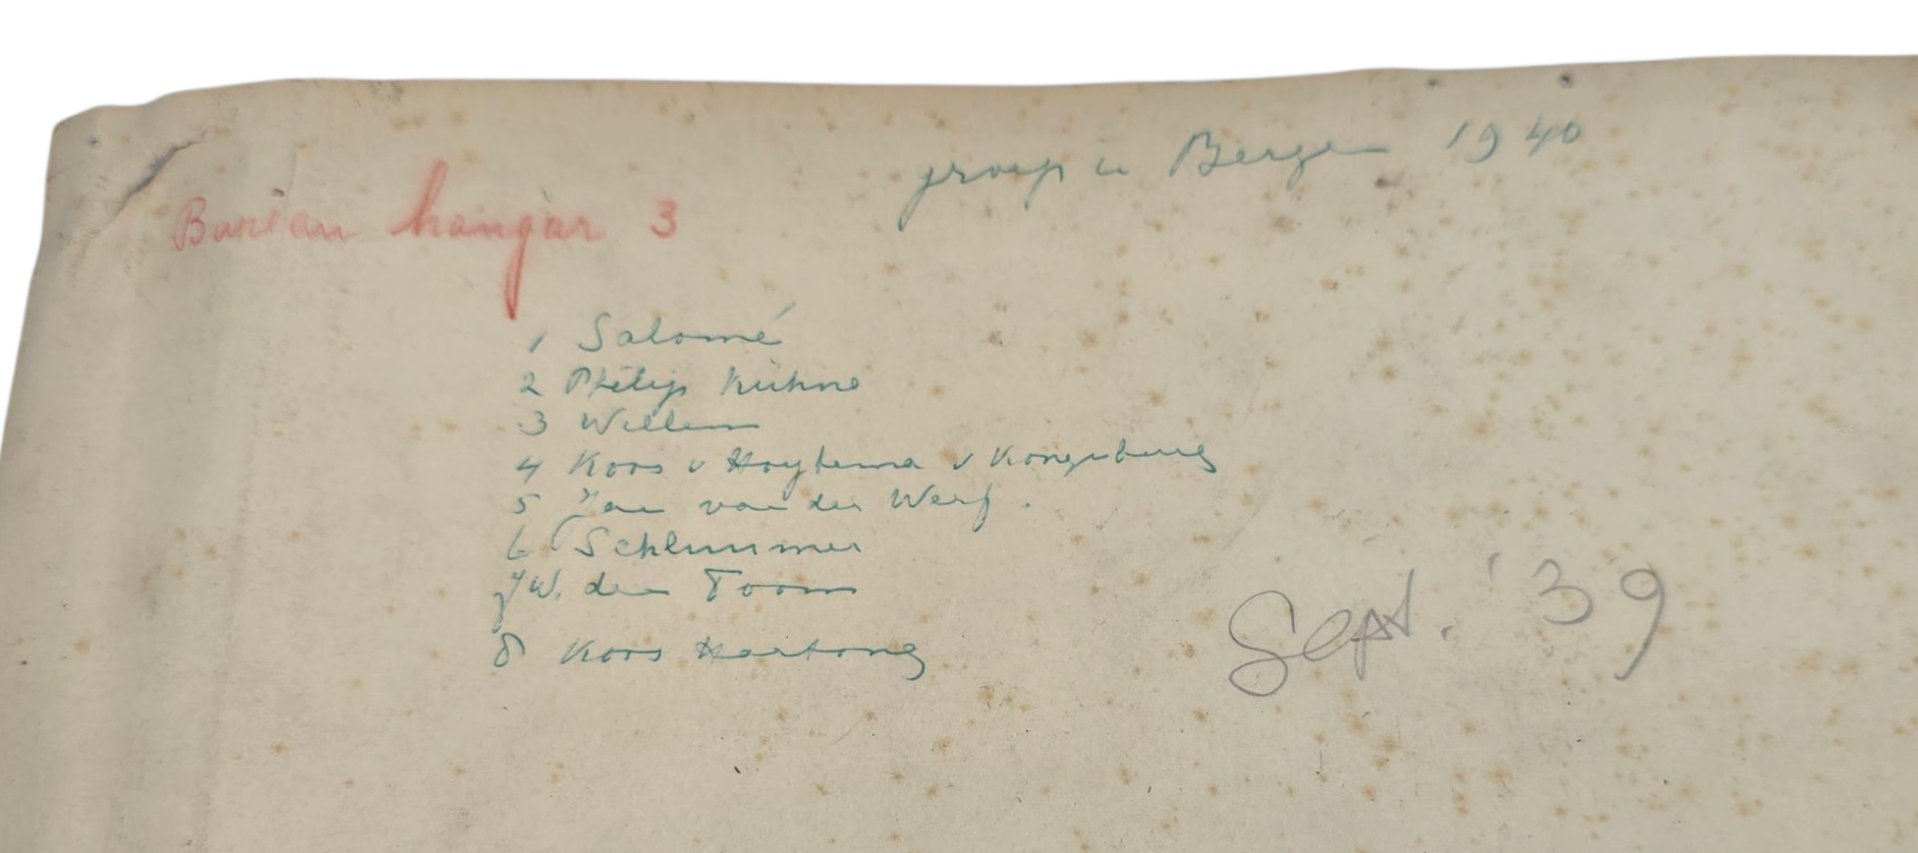 groep in Bergen 1940
Bureau hangar 3
1 Salomé
2 Philip Kühne
3 Willem
4 Koos v Hoytema v Konijnenburg
5 Jan van der Werf.
6 Schlummer
7 W. den Toom
8 Koos Hartong
Sept. '39